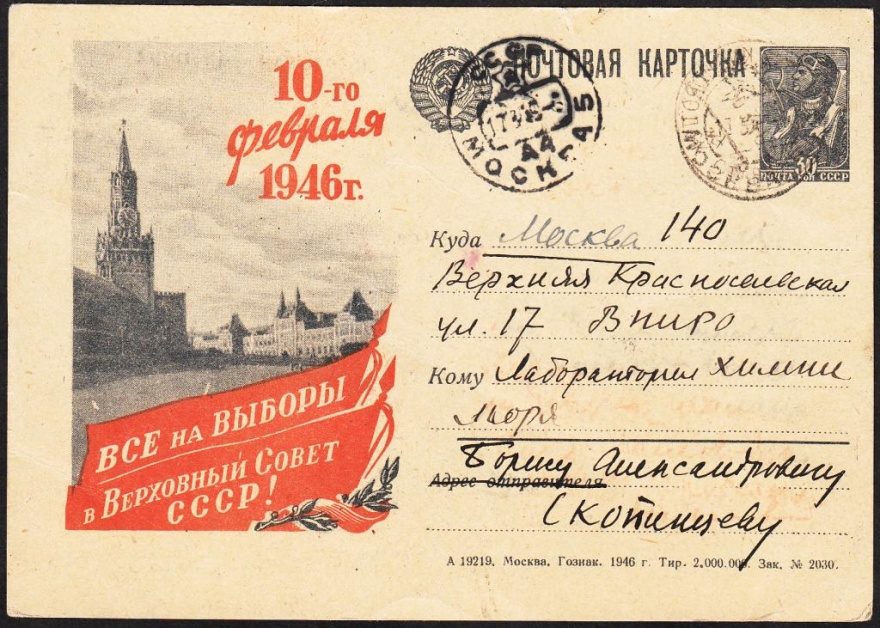 10-го
февраля
1946 г.
ВСЕ НА ВЫБОРЫ
В ВЕРХОВНЫЙ СОВЕТ
СССР!
ПОЧТОВАЯ КАРТОЧКА
СССР
МОСКВА
30
ПОЧТА КОП СССР
Куда Москва 140
Верхняя Красносельская
ул. 17 ВНИРО
Кому Лаборатория химии
моря
Борису Александровичу
Адрес отправителя
Скопинцеву
А 19219. Москва. Гознак. 1946 г. Тир. 2.000.000. Зак. № 2030.